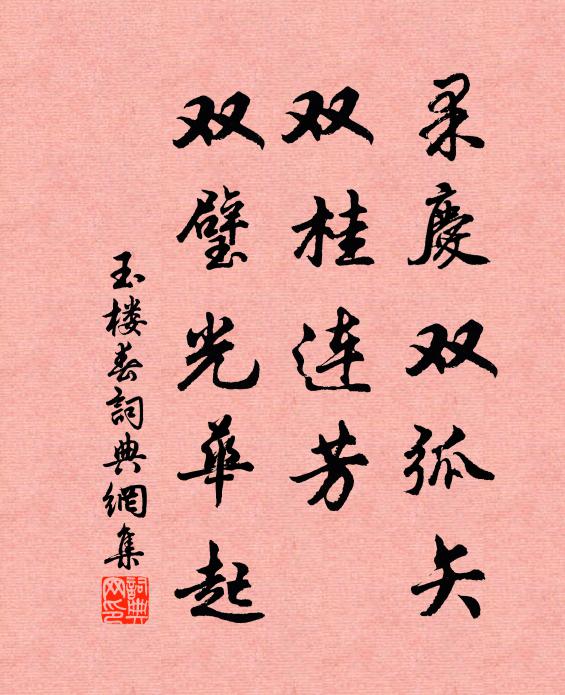 果慶双弧矢
双桂连芳
双璧光華起
玉楼春詞典網集
詞典网印